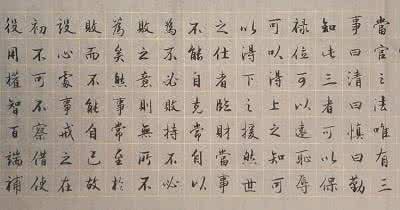 當官之法唯有三
事曰清曰慎曰勤
知此三者可以保
禄位可以遠恥辱
可以得上之知可
以得下之援然世
之仕者臨財當事
不能自克常自以
為不必敗持不必
敗之意則無所不
為矣然事常至於
敗而不能自已故
設心處事戒之在
初不可不察借使
役用權智百端補